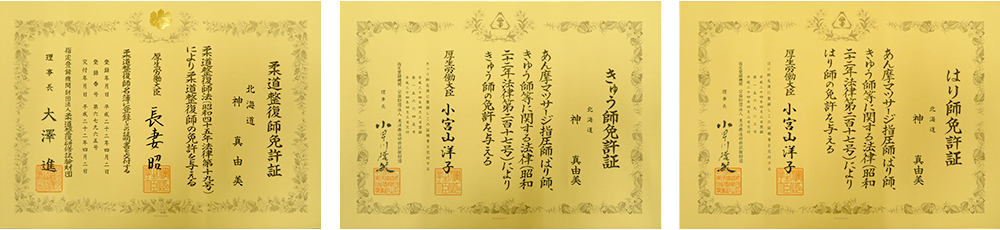 柔道整復師免許証
北海道
神 真由美
柔道整復師法(昭和四十五年法律第十九号)
により柔道整復師の免許を与える
厚生労働大臣 長妻 昭
柔道整復師名簿に登録した
登録年月日 平成二十二年四月二日
交付年月日 平成二十二年四月二日
指定登録機関財団法人柔道整復研修試験財団
理事長 大澤 進
きゅう師免許証
北海道
神 真由美
あん摩マツサージ指圧師、はり師、
きゆう師等に関する法律(昭和
二十二年法律第二百十七号)により
きゅう師の免許を与える
厚生労働大臣 小宮山洋子
理事長
はり師免許証
北海道
神 真由美
あん摩マツサージ指圧師、はり師、
きゆう師等に関する法律(昭和
二十二年法律第二百十七号)により
はり師の免許を与える
厚生労働大臣 小宮山洋子
理事長